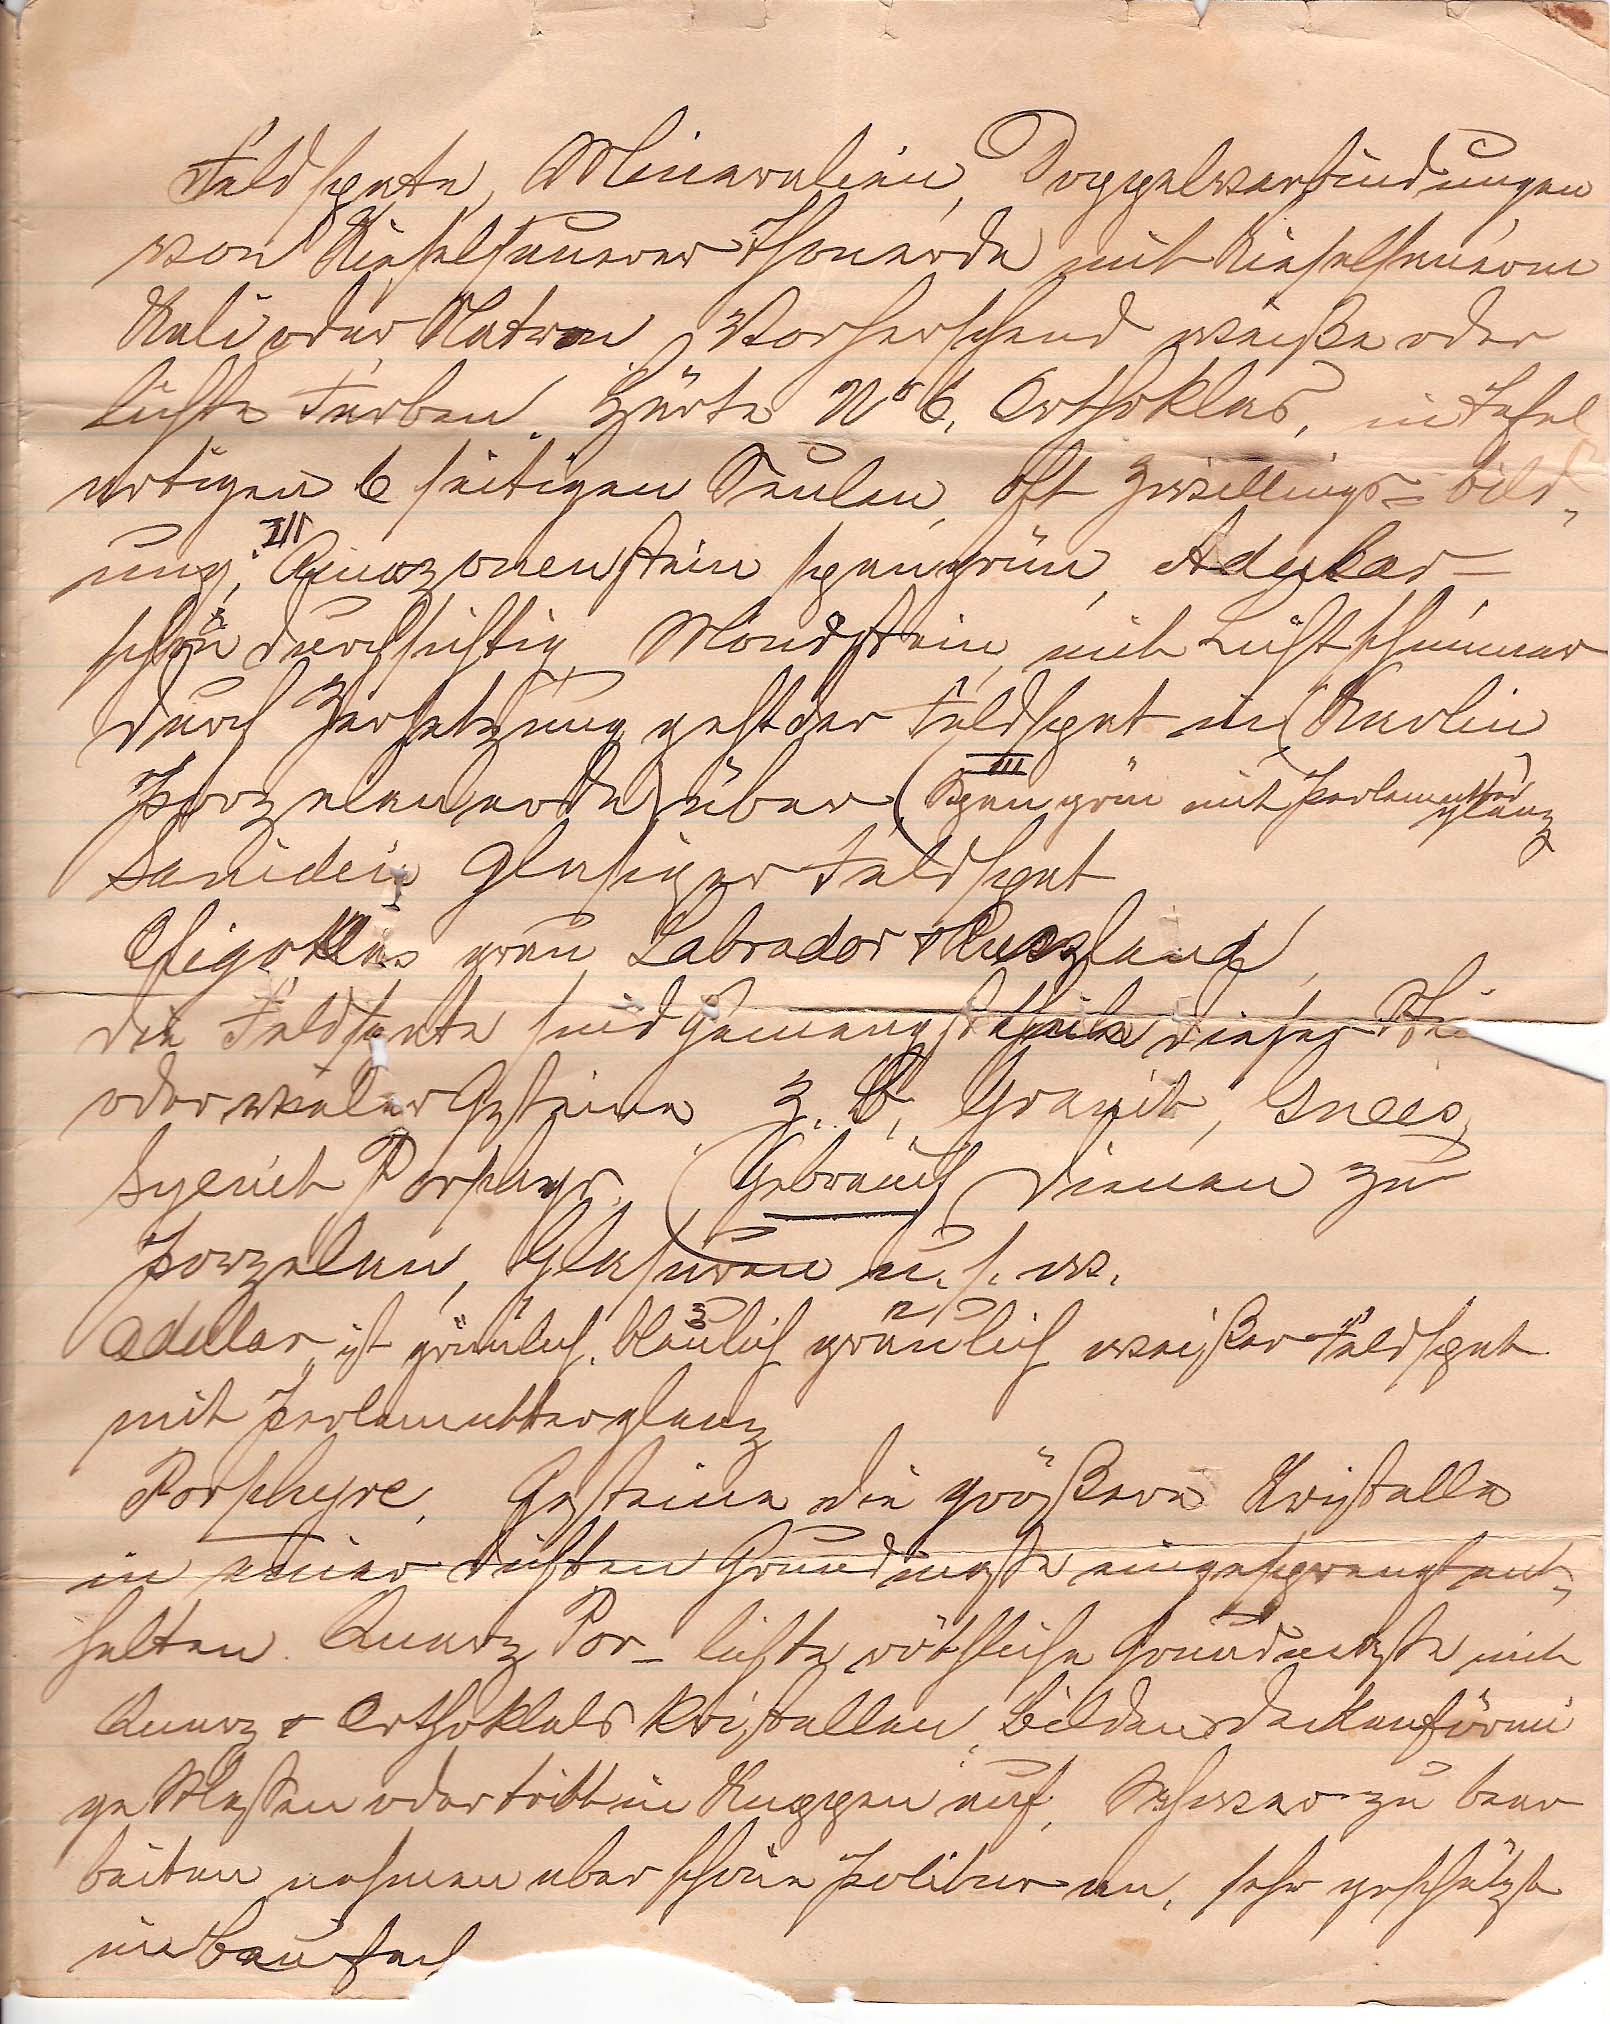 Feldspate, Mineralien, Doppelverbindungen
von Kieselsaurer Thonerde mit Kieselsaurem
Kali oder Natron Vorherschend weiße oder
lichte Farben. Härte No 6. Orthoklas, in tafel
artigen 6 seitigen Säulen, oft Zwillings= bild„
ung, III Amazonenstein spangrün, Adular–
schön durchsichtig Mondstein, mit Lichtschimmer
durch Zersetzung geht der Feldspat in (Kaolin
Porzelanerde) über (III Spangrün mit Perlemutter
glanz)
Sanidin Glasiger Feldspat
Oligoklas grau Labrador & Russland,
die Feldspate sind Gemengstheile dieser
oder vieler Gesteine z. B. Granit, Gneis,
Syenit Porphyr. (Gebrauch) dienen zu
Porzelan, Glasuren u. s. w.
Adular ist grünlich, 3 bläulich 2 gräulich weißer Feldspat
mit Perlemutterglanz
Porphyre, Gesteine die größere Kristalle
in einer dichten Grundmaße eingesprengt ent„
halten. Quarz Por– lichte röthliche Grundmaße mit
Quarz & Orthoklas Kristallen, Bilden deckenförmi
ge Maßen oder tritt in Kuppen auf, Schwer zu bear
beiten nehmen aber schöne Politur an, sehr geschätzt
im Baufach